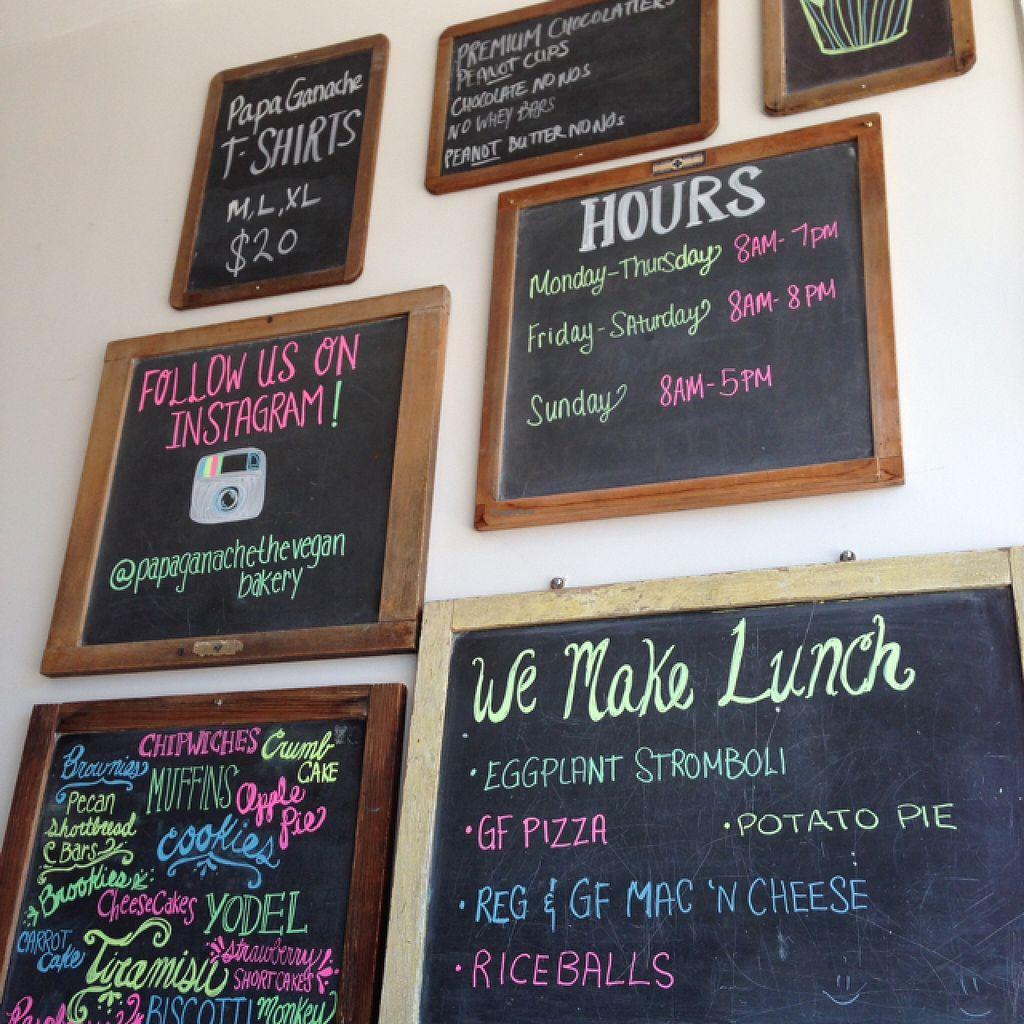 Papa Ganache
T-SHIRTS
M, L, XL
$20
PREMIUM CHOCOLATIERS
PEANOT CUPS
CHOCOLATE NO NOS
NO WHEY BARS
PEANOT BUTTER NO NOS
HOURS
Monday-Thursday 8AM-7PM
Friday-Saturday 8AM-8PM
Sunday 8AM-5PM
FOLLOW US ON
INSTAGRAM!
@papaganachethevegan
bakery
We Make Lunch
• EGGPLANT STROMBOLI
• GF PIZZA • POTATO PIE
• REG & GF MAC 'N CHEESE
• RICEBALLS
CHIPWICHES
Crumb
CAKE
Brownies
MUFFINS
Apple
Pie
Pecan
Shortbread
Bars
cookies
Brookies
CheeseCakes
YODEL
CARROT
Cake
Tiramisu
Strawberry
SHORTCAKES
BISCOTTI
Monkey